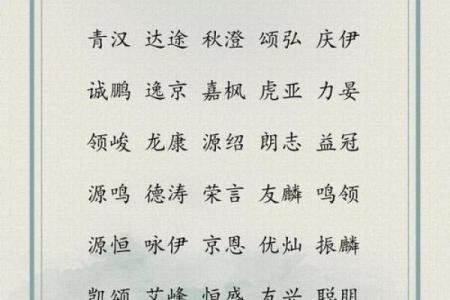 青汉 达途 秋澄 颂弘 庆伊
诚鹏 逸京 嘉枫 虎亚 力晏
领峻 龙康 源绍 朗志 益冠
源鸣 德涛 荣言 友麟 鸣领
源恒 咏伊 京恩 优灿 振麟
凯颂 艾峰 恒盛 友兴 聪明